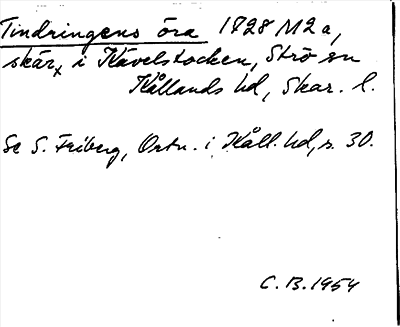 Tindringens öra 1828 M2a,
skär, i Kävelstocken, Strö sn
Kållands hd, Skar. l.
Se S. Friberg, Ortn. i Kåll. hd, s. 30.
C. B. 1954